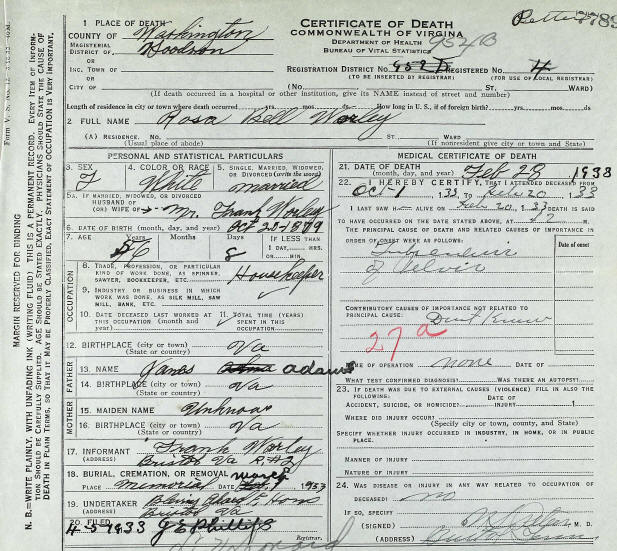 1 PLACE OF DEATH
COUNTY OF Washington
MAGISTERIAL DISTRICT OF Goodson
OR
INC. TOWN OF
OR
CITY OF
CERTIFICATE OF DEATH
COMMONWEALTH OF VIRGINIA
DEPARTMENT OF HEALTH
BUREAU OF VITAL STATISTICS
952B
REGISTRATION DISTRICT NO. REGISTERED NO. 4
(TO BE INSERTED BY REGISTRAR) (FOR USE OF LOCAL REGISTRAR)
(No. ST. WARD)
(If death occurred in a hospital or other institution, give its NAME instead of street and number)
Length of residence in city or town where death occurred yrs. mos. ds How long in U. S., if of foreign birth? yrs. mos. ds
2 FULL NAME Rosa Bell Worley
(A) RESIDENCE. No. ST. WARD
(Usual place of abode) (If nonresident give city or town and State)
PERSONAL AND STATISTICAL PARTICULARS
3. SEX F
4. COLOR OR RACE White
5. SINGLE, MARRIED, WIDOWED, OR DIVORCED (write the word) married
5A. IF MARRIED, WIDOWED, OR DIVORCED
HUSBAND OF
(OR) WIFE OF Mr. Frank Worley
6. DATE OF BIRTH (month, day, and year) Oct 20-1879
7. AGE Years Months Days IF LESS THAN
1 DAY, HRS.
OR MIN.
8
OCCUPATION
8. TRADE, PROFESSION, OR PARTICULAR KIND OF WORK DONE, AS SPINNER, SAWYER, BOOKKEEPER, ETC. Housekeeper
9. INDUSTRY OR BUSINESS IN WHICH WORK WAS DONE, AS SILK MILL, SAW MILL, BANK, ETC.
10. DATE DECEASED LAST WORKED AT THIS OCCUPATION (month and year)
11. TOTAL TIME (YEARS) SPENT IN THIS OCCUPATION
12. BIRTHPLACE (city or town) Va
(State or country)
FATHER
13. NAME James adams
14. BIRTHPLACE (city or town) Va
(State or country)
MOTHER
15. MAIDEN NAME Unknown
16. BIRTHPLACE (city or town) Va
(State or country)
17. INFORMANT Frank Worley
(ADDRESS) Bristol Va R#2
18. BURIAL, CREMATION, OR REMOVAL
PLACE Memorial DATE
19. UNDERTAKER
(ADDRESS) Bristol Va
20. FILED 4-5 1933 J E Phillips
Registrar.
MEDICAL CERTIFICATE OF DEATH
21. DATE OF DEATH (month, day, and year) Feb 28 1933
22. I HEREBY CERTIFY, THAT I ATTENDED DECEASED FROM
Oct-1, 33, TO Feb 20, 33
I LAST SAW H ALIVE ON Feb 20, 33 DEATH IS SAID
TO HAVE OCCURRED ON THE DATE STATED ABOVE, AT M.
THE PRINCIPAL CAUSE OF DEATH AND RELATED CAUSES OF IMPORTANCE IN ORDER OF ONSET WERE AS FOLLOWS:
Date of onset
Tuberculosis
of Pelvis
CONTRIBUTORY CAUSES OF IMPORTANCE NOT RELATED TO PRINCIPAL CAUSE:
Dont Know
27a
NAME OF OPERATION none DATE OF
WHAT TEST CONFIRMED DIAGNOSIS? WAS THERE AN AUTOPSY?
23. IF DEATH WAS DUE TO EXTERNAL CAUSES (VIOLENCE) FILL IN ALSO THE FOLLOWING:
ACCIDENT, SUICIDE, OR HOMICIDE? DATE OF INJURY 1
WHERE DID INJURY OCCUR?
(Specify city or town, county, and State)
SPECIFY WHETHER INJURY OCCURRED IN INDUSTRY, IN HOME, OR IN PUBLIC PLACE.
MANNER OF INJURY
NATURE OF INJURY
24. WAS DISEASE OR INJURY IN ANY WAY RELATED TO OCCUPATION OF DECEASED? no
IF SO, SPECIFY
(SIGNED) M. D.
(ADDRESS)
MARGIN RESERVED FOR BINDING
N. B.—WRITE PLAINLY, WITH UNFADING INK (WRITING FLUID) THIS IS A PERMANENT RECORD. EVERY ITEM OF INFORMATION SHOULD BE CAREFULLY SUPPLIED. AGE SHOULD BE STATED EXACTLY. PHYSICIANS SHOULD STATE THE CAUSE OF DEATH IN PLAIN TERMS, SO THAT IT MAY BE PROPERLY CLASSIFIED. EXACT STATEMENT OF OCCUPATION IS VERY IMPORTANT.